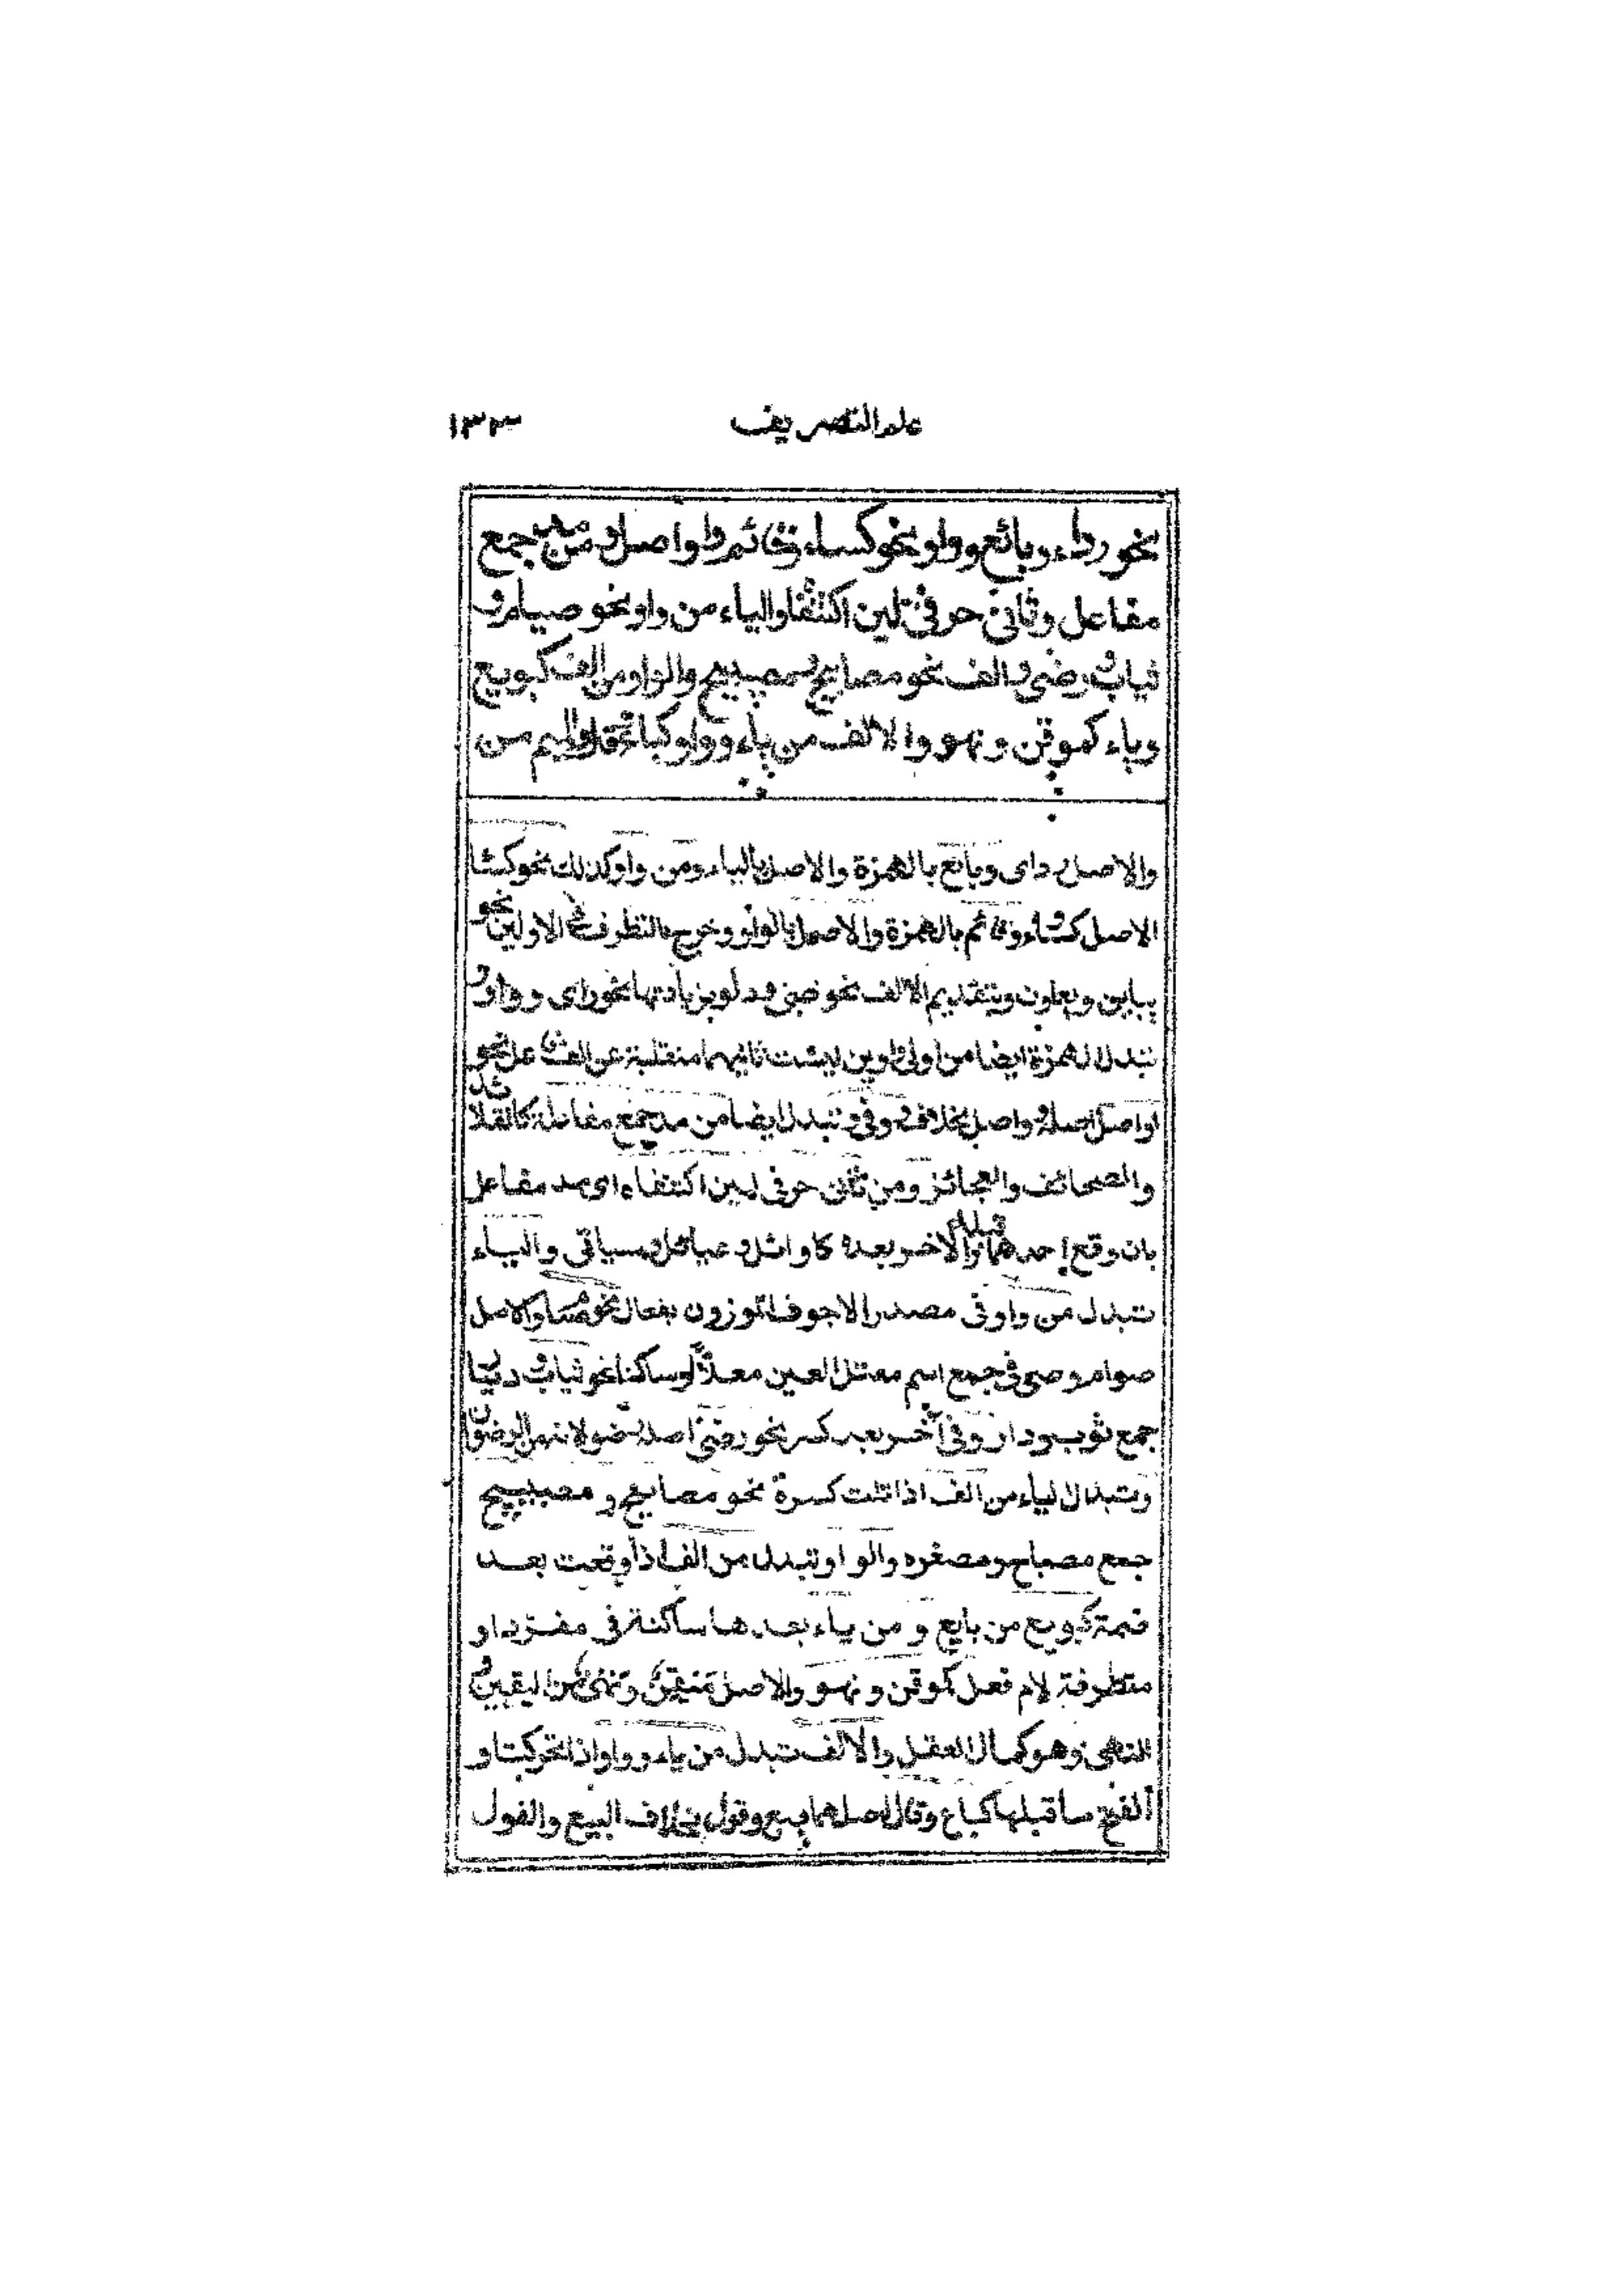 علم التصريف ١٣٣
نحو رداء وبائع وواو نحو كساء وقائم واواصل ومن مد جمع
مفاعل وثاني حرفي لين اكتنفا والياء من واو نحو صيام و
ثياب ورضي والف نحو مصابيح ومصيبيح والواو من الف كبويع
وياء كموقن ونهو والالف من ياء وواو كباع وقال والميم من
والاصل رداى وبايع بالهمزة والاصل بالياء ومن واو كذلك نحو كساء
الاصل كساو وقائم بالهمزة والاصل بالواو وخرج بالتطرف في الاولين نحو
يباين ويعاون وبتقديم الالف نحو ظبي ودلو بزيادتها نحو راى وواو و
تبدل الهمزة ايضا من اولى واوين ليست ثانيهما منقلبة عن الف فاعل نحو
اواصل اصله وواصل بخلاف ووفي وتبدل ايضا من مد جمع مفاعل كالقلائد
والصحائف والعجائز ومن ثاني حرفي لين اكتنفاه اى مد مفاعل
بان وقع احدهما قبله والاخر بعده كاوائل وعيائل وسياتى والياء
تبدل من واو فى مصدر الاجوف الموزون بفعال نحو صيام والاصل
صوام و فى جمع اسم معتل العين معلا او ساكنا نحو ثياب وديار
جمع ثوب ودار وفى آخر بعد كسر نحو رضى اصله رضو لانه من الرضوان
وتبدل الياء من الف اذا تلت كسرة نحو مصابيح و مصيبيح
جمع مصباح ومصغره والواو تبدل من الف اذا وقعت بعد
ضمة كبويع من بايع و من ياء بعدها ساكنة فى مفرد او
متطرفة لام فعل كموقن و نهو والاصل ميقن ونهى من اليقين و
النهى وهو كمال العقل والالف تبدل من ياء وواو اذا تحركتا و
انفتح ما قبلها كباع وقال اصلهما بيع وقول بخلاف البيع والقول